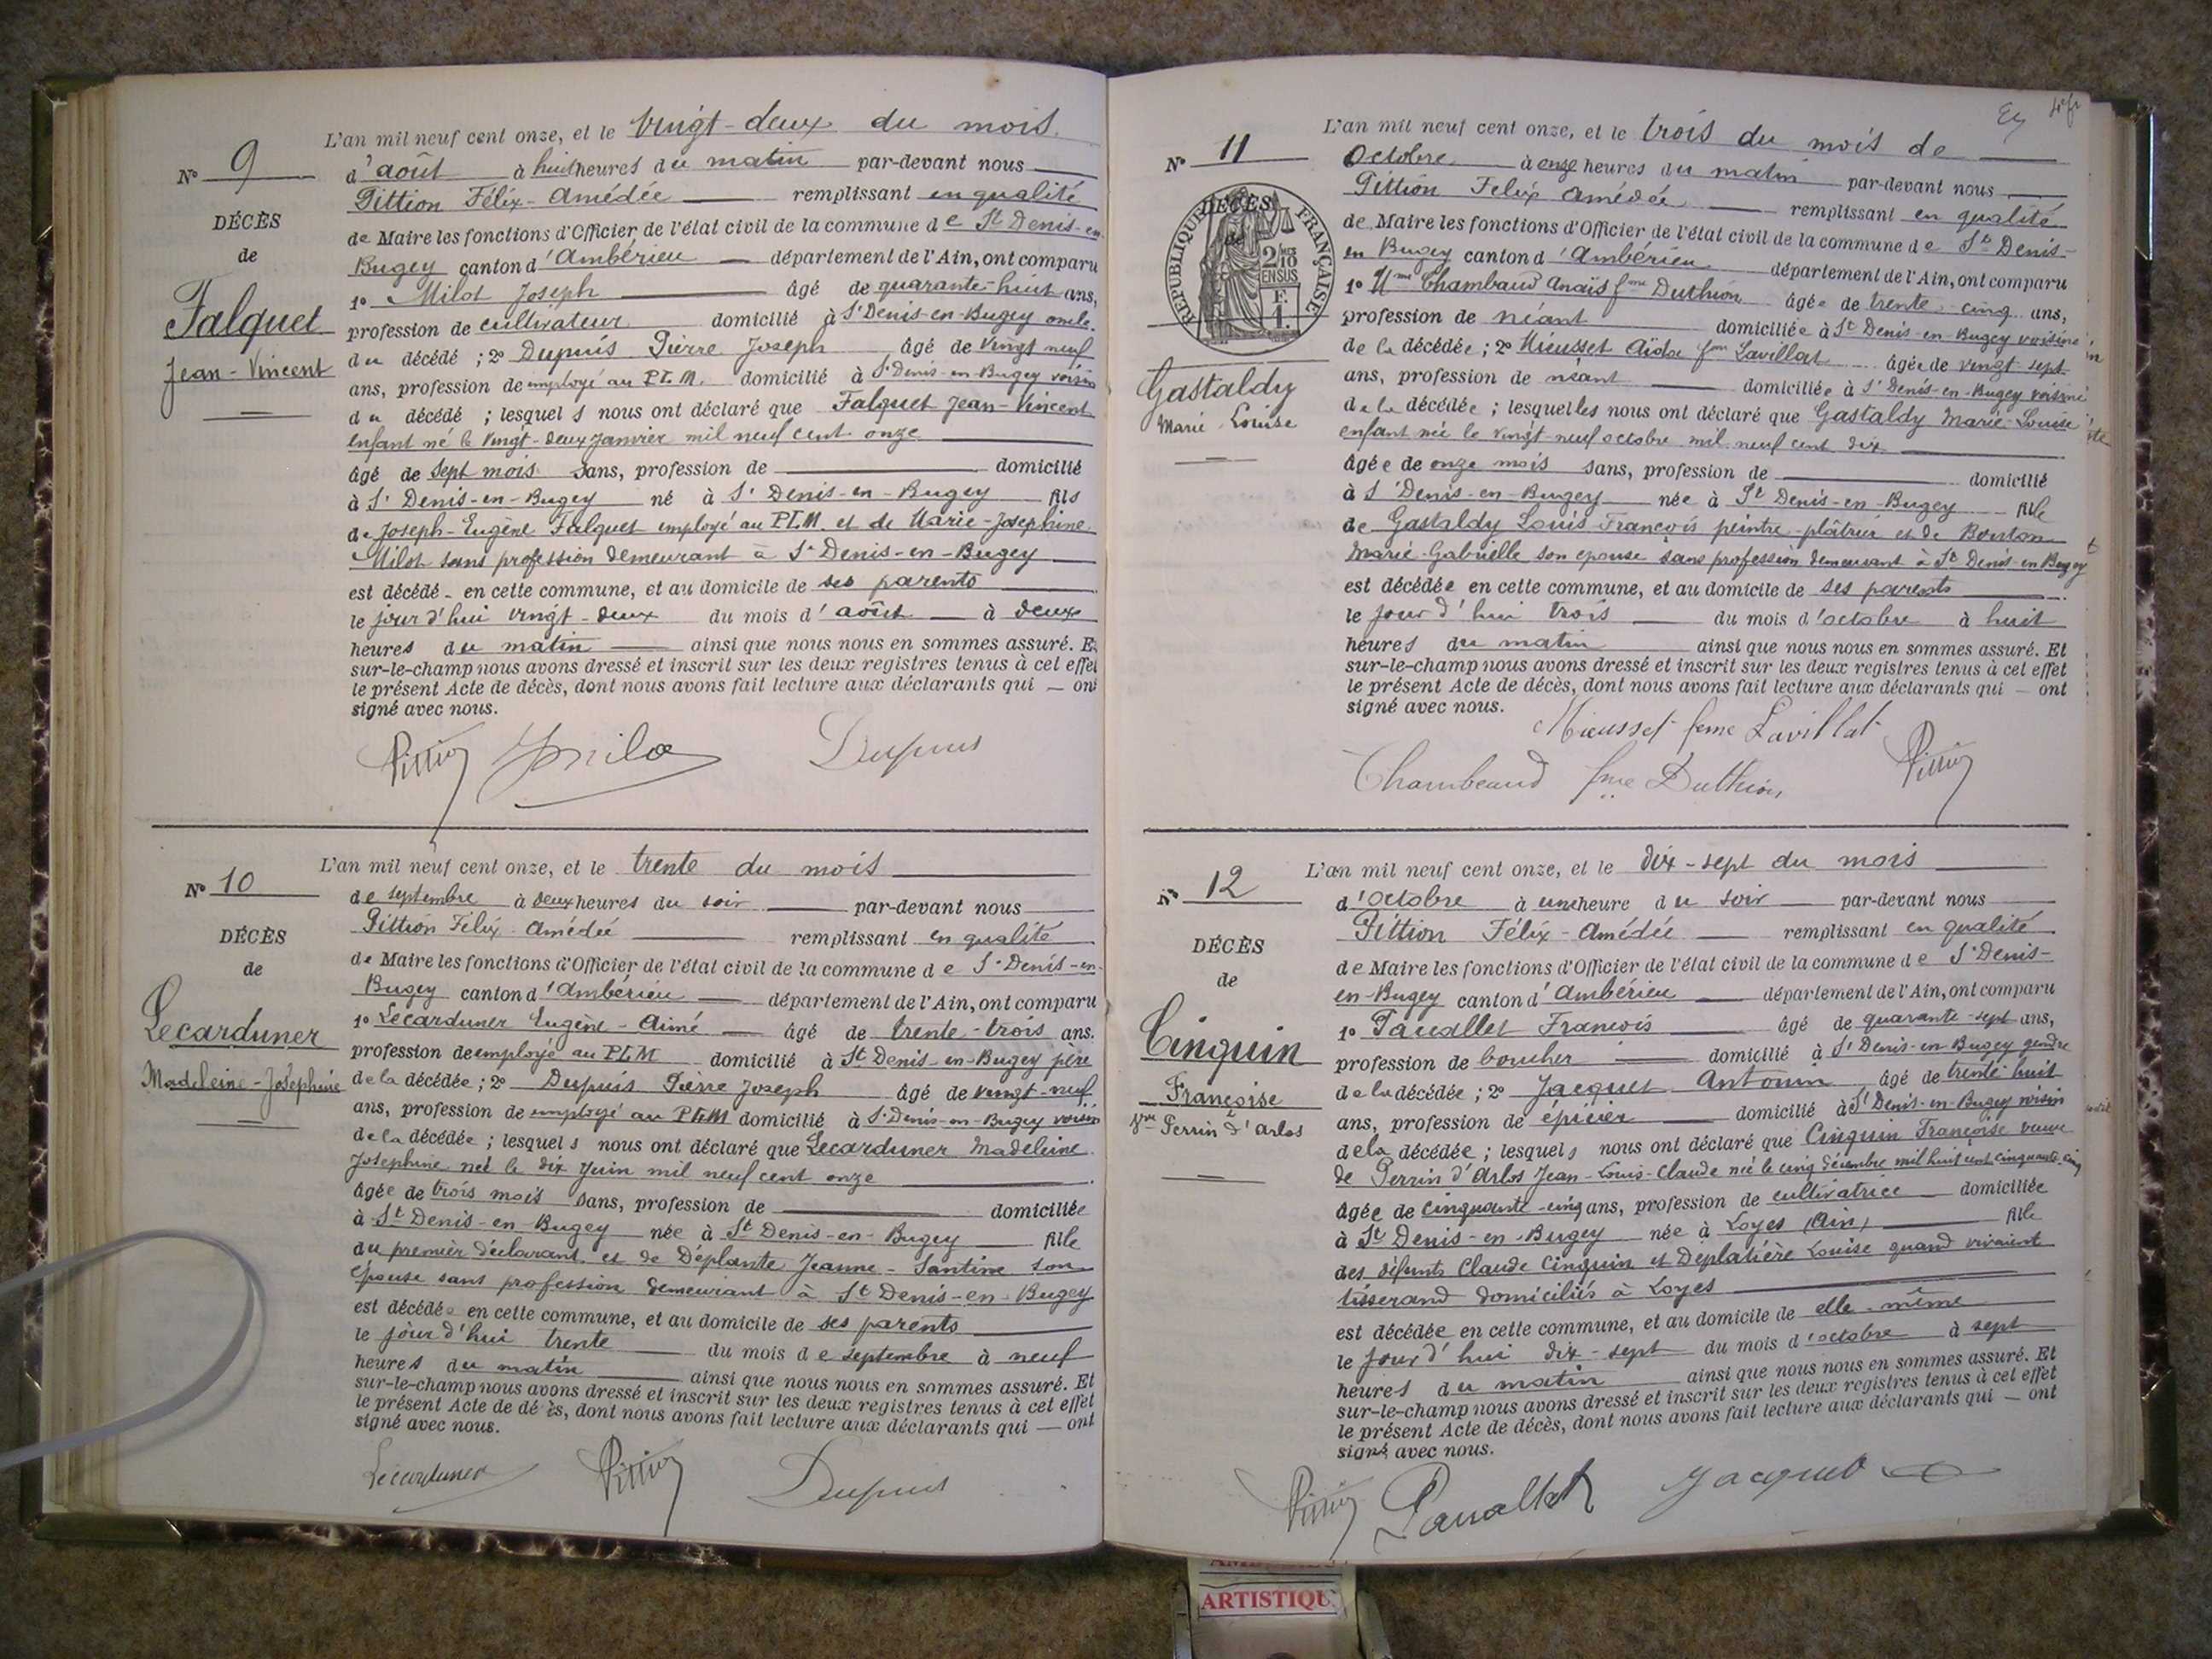 L'an mil neuf cent onze, et le vingt-deux du mois
N° 9
d'août à huit heures du matin par-devant nous
Pittion Félix-Amédée remplissant en qualité
DÉCÈS
de Maire les fonctions d'Officier de l'état civil de la commune de St Denis-en-
de
Bugey canton d'Ambérieu département de l'Ain, ont comparu
1° Milot Joseph âgé de quarante-huit ans,
Falquet
profession de cultivateur domicilié à St Denis-en-Bugey oncle
Jean-Vincent
du décédé ; 2° Dupuis Pierre Joseph âgé de vingt neuf
ans, profession de employé au P.L.M. domicilié à St Denis-en-Bugey voisin
du décédé ; lesquels nous ont déclaré que Falquet Jean-Vincent
enfant né le vingt-deux janvier mil neuf cent onze
âgé de sept mois sans, profession de domicilié
à St Denis-en-Bugey né à St Denis-en-Bugey fils
de Joseph-Eugène Falquet employé au PLM et de Marie-Josephine
Milot sans profession demeurant à St Denis-en-Bugey
est décédé en cette commune, et au domicile de ses parents
le jour d'hui vingt-deux du mois d'août à deux
heures du matin ainsi que nous nous en sommes assuré. Et
sur-le-champ nous avons dressé et inscrit sur les deux registres tenus à cet effet
le présent Acte de décès, dont nous avons fait lecture aux déclarants qui — ont
signé avec nous.
Pittion Milot Dupuis
L'an mil neuf cent onze, et le trente du mois
N° 10
de septembre à deux heures du soir par-devant nous
Pittion Félix-Amédée remplissant en qualité
DÉCÈS
de Maire les fonctions d'Officier de l'état civil de la commune de St Denis-en-
de
Bugey canton d'Ambérieu département de l'Ain, ont comparu
1° Lecarduner Eugène-Aimé âgé de trente-trois ans.
Lecarduner
profession de employé au PLM domicilié à St Denis-en-Bugey père
Madeleine-Josephine
de la décédée ; 2° Dupuis Pierre Joseph âgé de vingt-neuf
ans, profession de employé au PLM domicilié à St Denis-en-Bugey voisin
de la décédée ; lesquels nous ont déclaré que Lecarduner Madeleine
Josephine née le dix juin mil neuf cent onze
âgée de trois mois sans, profession de domiciliée
à St Denis-en-Bugey née à St Denis-en-Bugey fille
du premier déclarant et de Déplante Jeanne-Santine son
épouse sans profession demeurant à St Denis-en-Bugey
est décédée en cette commune, et au domicile de ses parents
le jour d'hui trente du mois de septembre à neuf
heures du matin ainsi que nous nous en sommes assuré. Et
sur-le-champ nous avons dressé et inscrit sur les deux registres tenus à cet effet
le présent Acte de décès, dont nous avons fait lecture aux déclarants qui — ont
signé avec nous.
Lecarduner Pittion Dupuis
L'an mil neuf cent onze, et le trois du mois de
N° 11
Octobre à onze heures du matin par-devant nous
Pittion Felix Amédée remplissant en qualité
DÉCÈS
de
RÉPUBLIQUE FRANÇAISE
2/10 EN SUS
F. 1.
de Maire les fonctions d'Officier de l'état civil de la commune de St Denis-
en Bugey canton d'Ambérieu département de l'Ain, ont comparu
1° Mme Chambaud Anaïs fme Duthion âgée de trente-cinq ans,
profession de néant domiciliée à St Denis-en-Bugey voisine
de la décédée ; 2° Mieusset Aïda fme Lavillat âgée de vingt-sept
Gastaldy
ans, profession de néant domiciliée à St Denis-en-Bugey voisine
Marie-Louise
de la décédée ; lesquelles nous ont déclaré que Gastaldy Marie-Louise
enfant née le vingt-neuf octobre mil neuf cent dix
âgée de onze mois sans, profession de domicilié
à St Denis-en-Bugey née à St Denis-en-Bugey fille
de Gastaldy Louis François peintre-plâtrier et de Bouton
Marie-Gabrielle son epouse sans profession demeurant à St Denis-en Bugey
est décédée en cette commune, et au domicile de ses parents
le jour d'hui trois du mois d'octobre à huit
heures du matin ainsi que nous nous en sommes assuré. Et
sur-le-champ nous avons dressé et inscrit sur les deux registres tenus à cet effet
le présent Acte de décès, dont nous avons fait lecture aux déclarants qui — ont
signé avec nous.
Mieusset feme Lavillat
Chambeaud fme Duthion Pittion
L'an mil neuf cent onze, et le dix-sept du mois
N° 12
d'Octobre à une heure du soir par-devant nous
Pittion Félix-Amédée remplissant en qualité
DÉCÈS
de Maire les fonctions d'Officier de l'état civil de la commune de St Denis-
de
en-Bugey canton d'Ambérieu département de l'Ain, ont comparu
1° Pavallet François âgé de quarante-sept ans,
Cinquin
profession de boucher domicilié à St Denis-en-Bugey gendre
de la décédée ; 2° Jacquet Antonin âgé de trente huit
Françoise
ans, profession de épicier domicilié à St Denis-en-Bugey voisin
Vve Perrin d'Arlos
de la décédée ; lesquels nous ont déclaré que Cinquin Françoise veuve
de Perrin d'Arlos Jean-Louis-Claude née le cinq décembre mil huit cent cinquante-cinq
âgée de cinquante-cinq ans, profession de cultivatrice domiciliée
à St Denis-en-Bugey née à Loyes (Ain) fille
des défunts Claude Cinquin et Deplatière Louise quand vivaient
tisserand domiciliés à Loyes
est décédée en cette commune, et au domicile de elle-même
le jour d'hui dix-sept du mois d'octobre à sept
heures du matin ainsi que nous nous en sommes assuré. Et
sur-le-champ nous avons dressé et inscrit sur les deux registres tenus à cet effet
le présent Acte de décès, dont nous avons fait lecture aux déclarants qui — ont
signé avec nous.
Pittion Pavallet Jacquet
ARTISTIQU